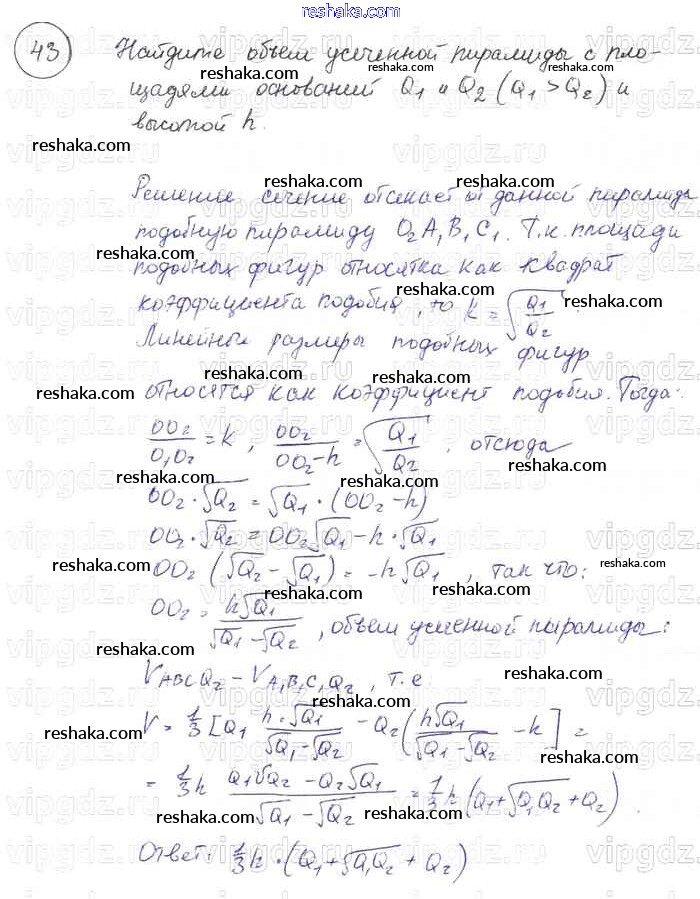 reshaka.com
43 Найдите объем усеченной пирамиды с пло-
щадями оснований Q1 и Q2 (Q1 > Q2) и
высотой h.
Решение сечение отсекает от данной пирамиды
подобную пирамиду O2A1B1C1. Т.к. площади
подобных фигур относятка как квадрат
коэффициента подобия, то k = √(Q1/Q2)
Линейные размеры подобных фигур
относятся как коэффициент подобия. Тогда:
OO2/O1O2 = k, OO2/(OO2-h) = √(Q1/Q2), отсюда
OO2 · √Q2 = √Q1 · (OO2 - h)
OO2 · √Q2 = OO2√Q1 - h · √Q1
OO2 (√Q2 - √Q1) = -h√Q1, так что:
OO2 = h√Q1/(√Q1 - √Q2), объем усеченной пирамиды:
VABCQ2 - VA1B1C1Q2, т.е.
V = 1/3 [Q1 h·√Q1/(√Q1-√Q2) - Q2 (h√Q1/(√Q1-√Q2) - h] =
= 1/3 h (Q1√Q2 - Q2√Q1)/(√Q1 - √Q2) = 1/3 h (Q1 + √Q1Q2 + Q2).
Ответ: 1/3 h · (Q1 + √Q1Q2 + Q2)